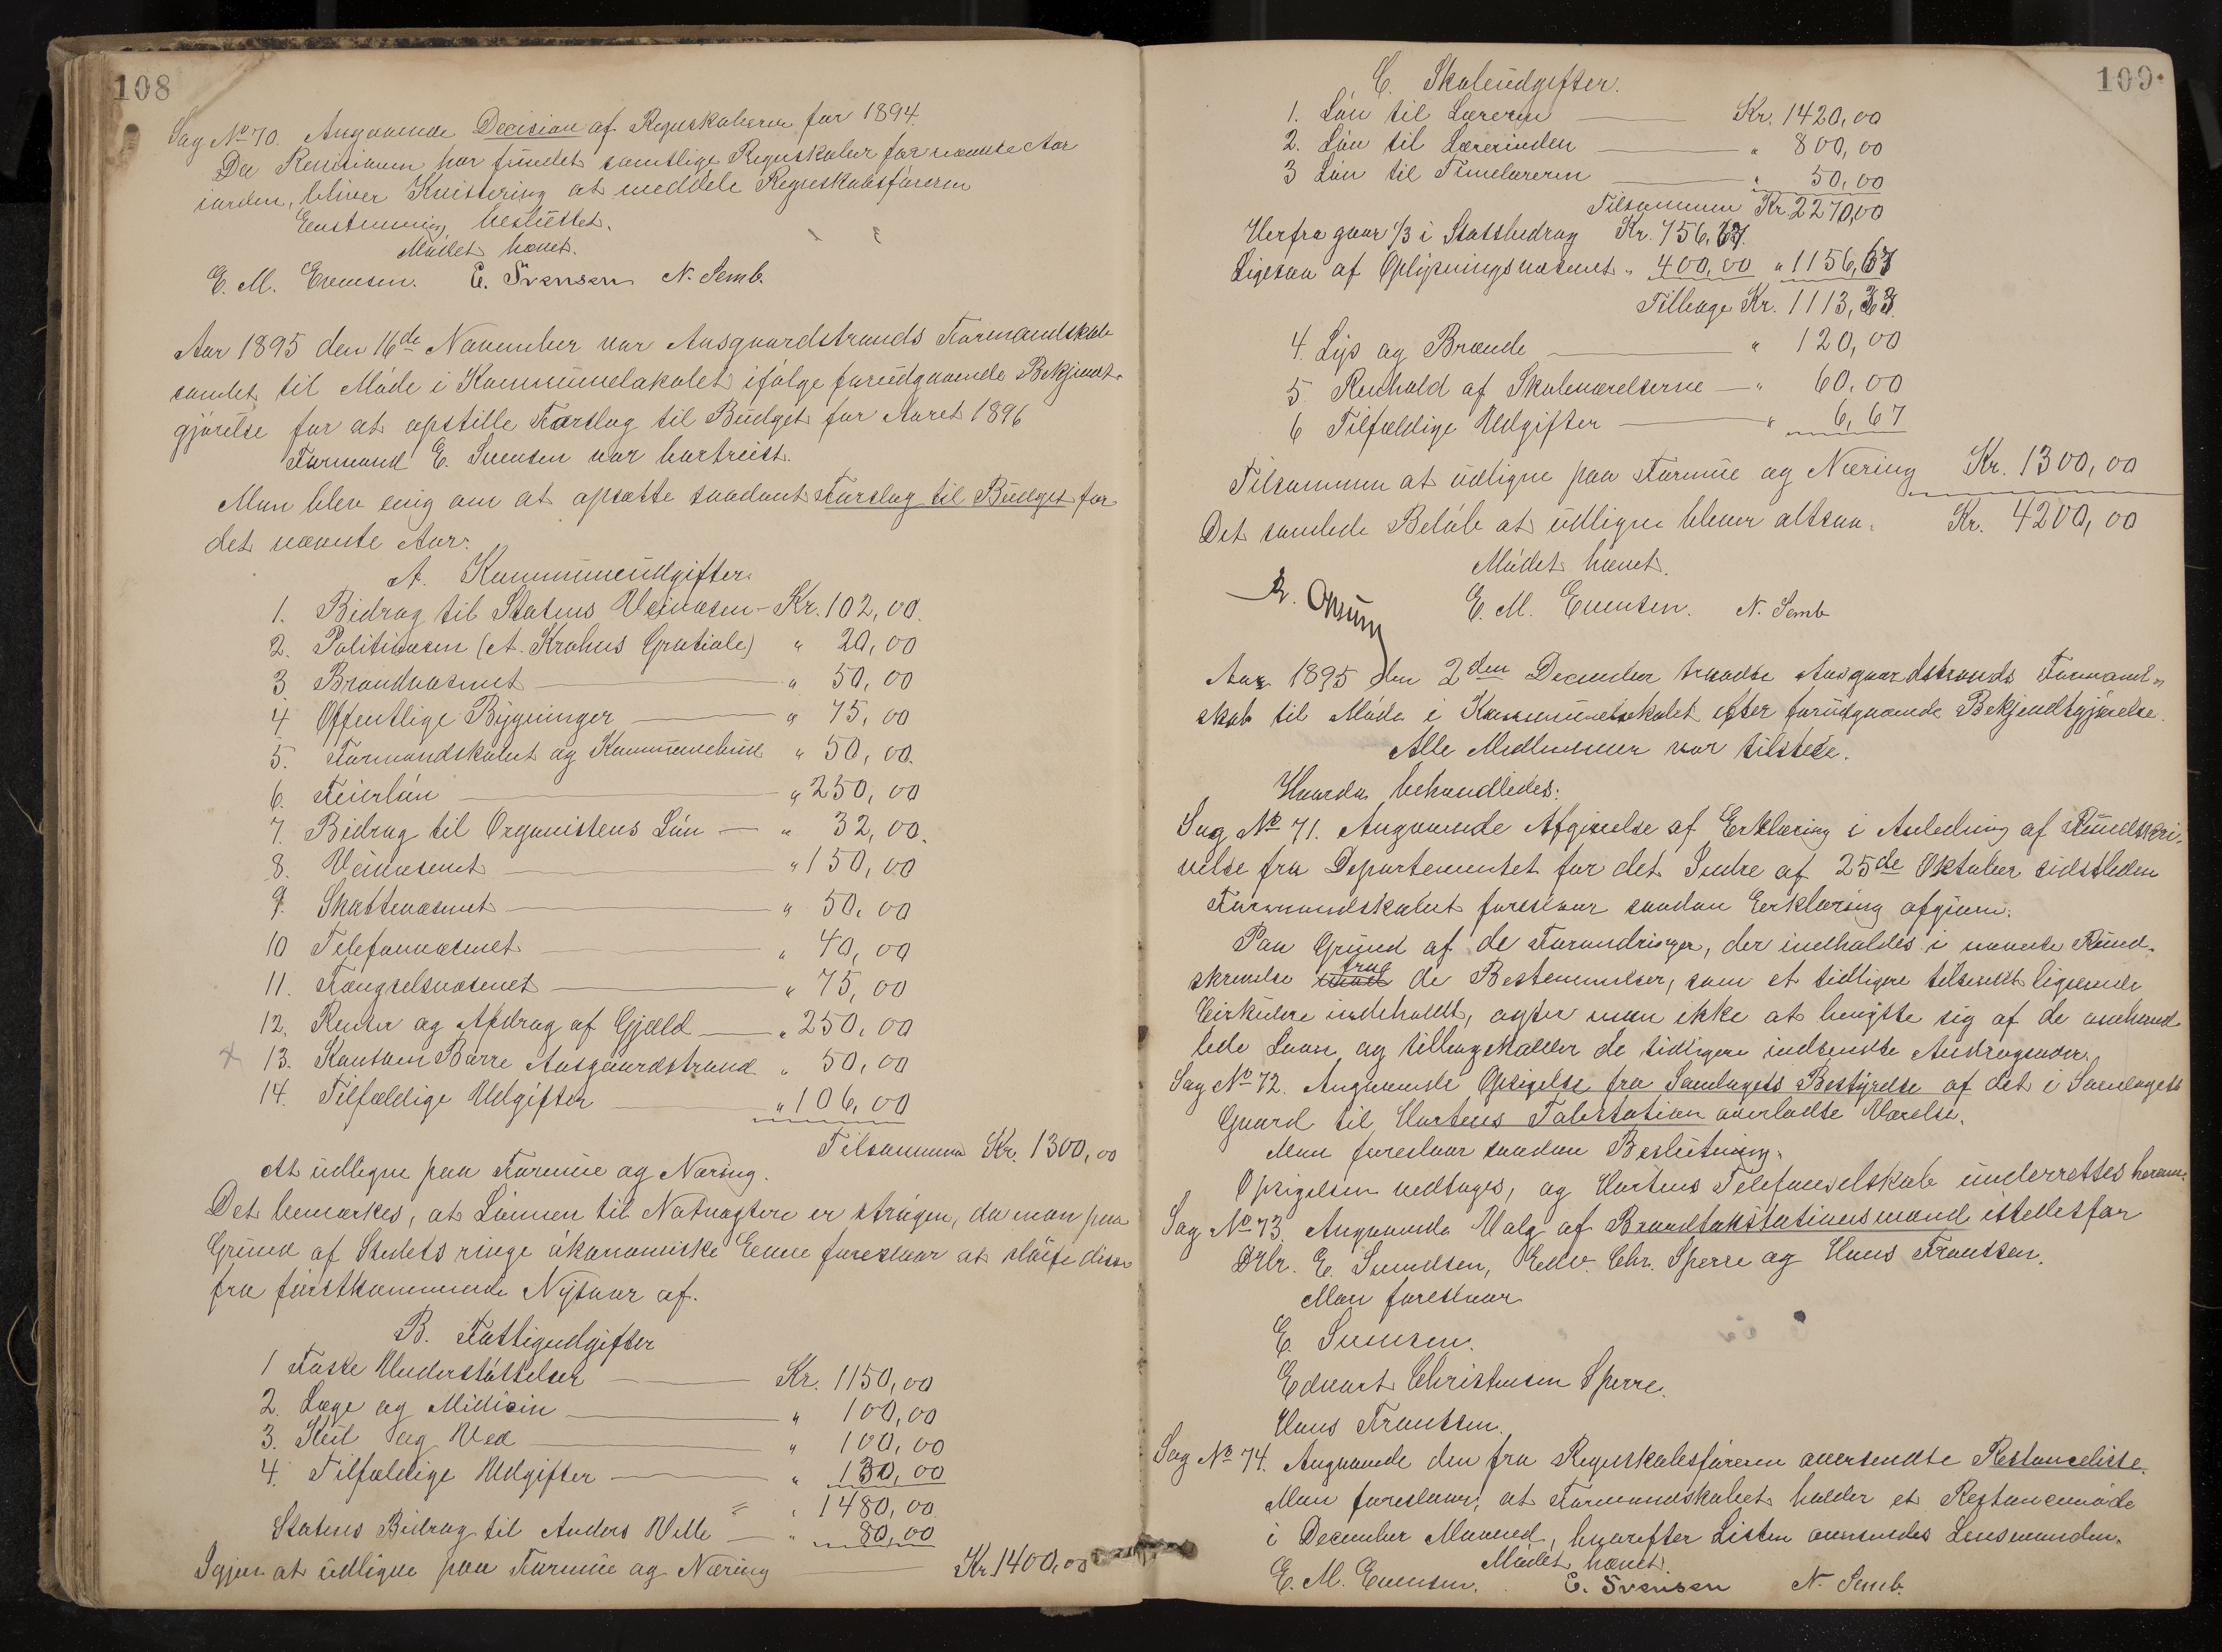 108
Sag No 70. Angaaende Decision af Regnskaberne for 1894.
Da Revisionen har fundet samtlige Regnskaber for nævnte Aar
iorden, bliver Kvittering at meddele Regnskabsføreren
Eenstemmig besluttet.
Mødet hævet.
E. M. Evensen. E. Svensen N. Semb.
Aar 1895 den 16de November var Aasgaardstrands Formandskab
samlet til Møde i Kommunelokalet ifølge forudgaaende Bekjendt-
gjørelse for at opstille Forslag til Budget for Aaret 1896
Formand E. Svensen var bortreist.
Man blev enig om at opsætte saadant Forslag til Budget for
det nævnte Aar:
A. Kommuneudgifter.
1. Bidrag til Statens Veivæsen - Kr. 102,00.
2. Politivæsen (A. Krohns Gratiale) " 20,00
3 Brandvæsenet " 50,00
4 Offentlige Bygninger " 75,00
5. Formandskabet og Kommunebud " 50,00.
6. Feierløn " 250,00
7. Bidrag til Organistens Løn " 32,00.
8. Veivæsenet " 150,00
9. Skattevæsenet " 50,00
10 Telefonvæsenet " 40,00
11. Fængselsvæsenet " 75,00
12. Renter og Afdrag af Gjæld " 250,00
x 13. Kontoen Borre Aasgaardstrand " 50,00
14. Tilfældige Udgifter " 106,00
Tilsammen Kr. 1300,00
At udligne paa Formue og Næring.
Det bemærkes, at Lønnen til Natvægtere er strøgen, da man paa
Grund af Stedets ringe økonomiske Evne foreslaar at sløife disse
fra førstkommende Nytaar af.
B. Fattigudgifter
1 Faste Understøttelser Kr. 1150,00
2. Læge og Medicin " 100,00
3. Kul og Ved " 100,00
4. Tilfældige Udgifter " 130,00
= " 1480,00
Statens Bidrag til Anders Wille " 80,00
Igjen at udligne paa Formue og Næring Kr. 1400,00
109
C. Skoleudgifter.
1. Løn til Læreren Kr. 1420,00
2. Løn til Lærerinden " 800,00
3 Løn til Timelæreren " 50,00
Tilsammen Kr. 2270,00
Herfra gaar 1/3 i Statsbidrag Kr. 756,67.
Ligesaa af Oplysningsvæsenet " 400,00 " 1156,67
Tilbage Kr. 1113,33.
4. Lys og Brænde " 120,00
5. Renhold af Skoleværelserne " 60,00
6 Tilfældige Udgifter " 6,67
Tilsammen at udligne paa Formue og Næring Kr. 1300,00
Det samlede Beløb at udligne bliver altsaa. Kr. 4200,00
Mødet hævet.
E. M. Evensen. N. Semb
Aar 1895 den 2den December traadte Aasgaardstrands Formand-
skab til Møde i Kommunelokalet efter forudgaaende Bekjendtgjørelse.
Alle Medlemmer var tilstede.
Hvorda behandledes:
Sag No 71. Angaaende Afgivelse af Erklæring i Anledning af Rundskri-
velse fra Departementet for det Indre af 25de Oktober sidstleden
Formandskabet foreslaar saadan Erklæring afgiven:
Paa Grund af de Forandringer, der indholdes i nævnte Rund-
skrivelse fra de Bestemmelser, som et tidligere tilsendt lignende
Cirkulære indeholdt, agter man ikke at benytte sig af de omhand-
lede Laan og tilbagekalder de tidligere indsendte Andragender.
Sag No 72. Angaaende Opsigelse fra Samlagets Bestyrelse af det i Samlagets
Gaard til Hortens Talestation overladte Værelse.
Man foreslaar saadan Beslutning:
Opsigelsen vedtages, og Hortens Telefonselskab underrettes herom.
Sag No 73. Angaaende Valg af Brandtakstationsmænd istedetfor
DHr. E. Svendsen, Edv. Chr. Sperre og Hans Frantsen.
Man foreslaar
E. Svensen.
Edvart Christensen Sperre.
Hans Frantsen.
Sag No 74. Angaaende den fra Regnskabsføreren oversendte Restanceliste.
Man foreslaar, at Formandskabet holder et Restancemøde
i December Maaned, hvorefter Listen oversendes Lensmanden.
Mødet hævet.
E. M. Evensen. E. Svensen N. Semb.